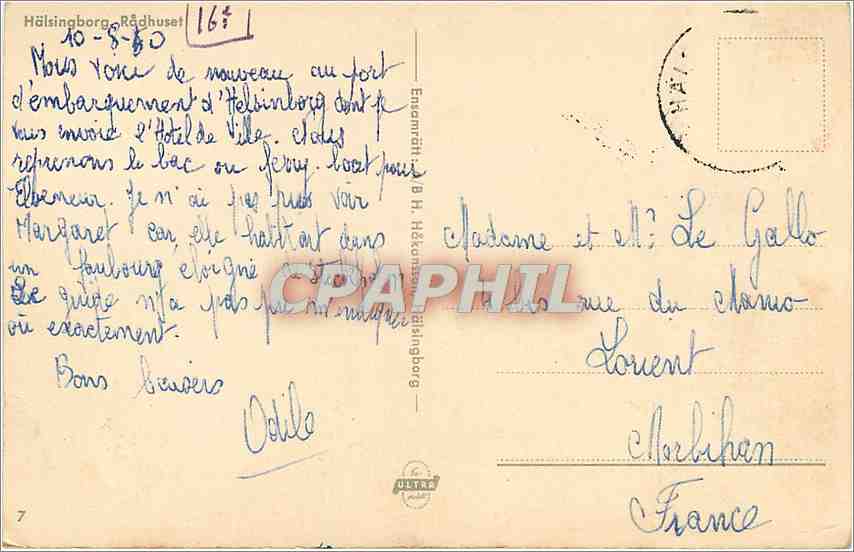 Hälsingborg. Rådhuset
16e
10-8-50
Nous voici de nouveau au port
d'embarquement d'Helsinborg dont je
vous envoie l'Hotel de Ville. Nous
reprenons le bac ou ferry-boat pour
Elseneur. Je n'ai pas pu voir
Margaret car elle habitait dans
un faubourg éloigné
Le guide n'a pas pu m'indiquer
où exactement.
Bons baisers
Odile
Ensamrätt: A/B H. Håkansson, Hälsingborg
Madame et Mr Le Gallo
bis rue du
Lorient
Morbihan
France
CPAPHIL
ULTRA
7